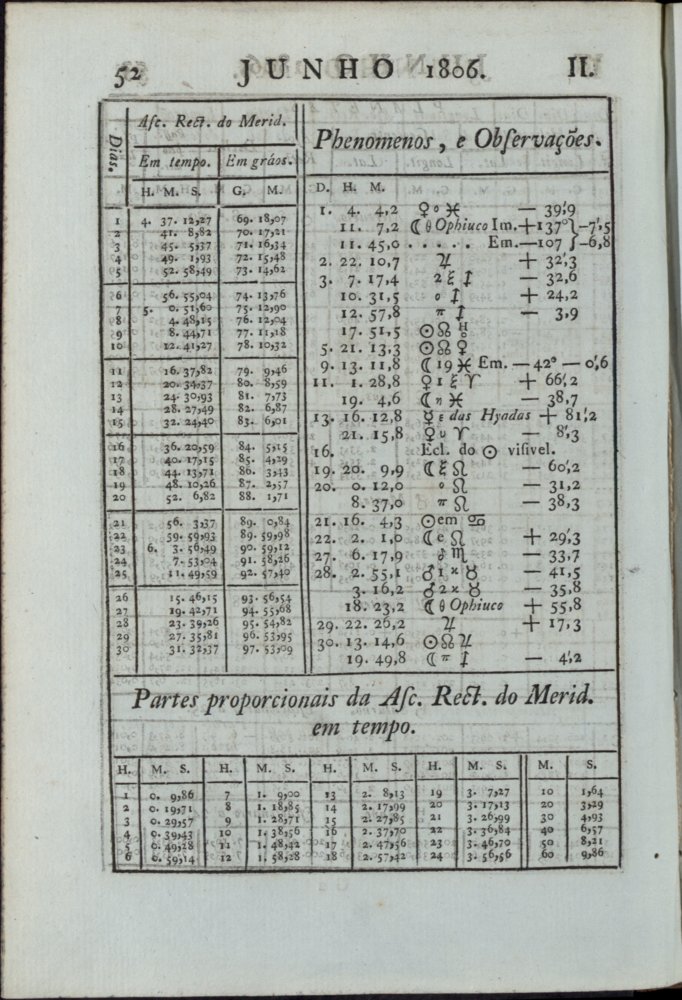 52 JUNHO 1806. II.
Dias.
Aſc. Rect. do Merid.
Em tempo. Em gráos.
H. M. S. G. M.
1 4. 37. 12,27 69. 18,07
2 41. 8,82 70. 17,21
3 45. 5,37 71. 16,34
4 49. 1,93 72. 15,48
5 52. 58,49 73. 14,62
6 56. 55,04 74. 13,76
7 5. 0. 51,60 75. 12,90
8 4. 48,15 76. 12,04
9 8. 44,71 77. 11,18
10 12. 41,27 78. 10,32
11 16. 37,82 79. 9,46
12 20. 34,37 80. 8,59
13 24. 30,93 81. 7,73
14 28. 27,49 82. 6,87
15 32. 24,40 83. 6,01
16 36. 20,59 84. 5,15
17 40. 17,15 85. 4,29
18 44. 13,71 86. 3,43
19 48. 10,26 87. 2,57
20 52. 6,82 88. 1,71
21 56. 3,37 89. 0,84
22 59. 59,93 89. 59,98
23 6. 3. 56,49 90. 59,12
24 7. 53,04 91. 58,26
25 11. 49,59 92. 57,40
26 15. 46,15 93. 56,54
27 19. 42,71 94. 55,68
28 23. 39,26 95. 54,82
29 27. 35,81 96. 53,95
30 31. 32,37 97. 53,09
Phenomenos, e Obſervações.
D. H. M.
1. 4. 4,2 ♀ o ♓ — 39′,9
11. 7,2 ☾ θ Ophiuco Im. +137° } —7′,5
11. 45,0 . . . . . Em. —107 } —6,8
2. 22. 10,7 ♃ + 32′,3
3. 7. 17,4 2 ξ ♐ — 32,6
10. 31,5 o ♐ + 24,2
12. 57,8 π ♐ — 3,9
17. 51,5 ☉ ☊ ♅
5. 21. 13,3 ☉ ☊ ♀
9. 13. 11,8 ☾ 19 ♓ Em. — 42° — 0′,6
11. 1. 28,8 ♀ 1 ξ ♈ + 66′,2
19. 4,6 ☾ η ♓ — 38,7
13. 16. 12,8 ☿ ε das Hyadas + 81′,2
21. 15,8 ♀ υ ♈ — 8′,3
16. Ecl. do ☉ viſivel.
19. 20. 9,9 ☾ ξ ♌ — 60′,2
20. 0. 12,0 o ♌ — 31,2
8. 37,0 π ♌ — 38,3
21. 16. 4,3 ☉ em ♋
22. 2. 1,0 ☾ e ♌ + 29′,3
27. 6. 17,9 ♂ ♏ — 33,7
28. 2. 55,1 ♂ 1 ϰ ♉ — 41,5
3. 16,2 ♂ 2 ϰ ♉ — 35,8
18. 23,2 ☾ θ Ophiuco + 55,8
29. 22. 26,2 ♃ + 17,3
30. 13. 14,6 ☉ ☊ ♃
19. 49,8 ☾ π ♐ — 4′,2
Partes proporcionais da Aſc. Rect. do Merid.
em tempo.
H. M. S. H. M. S. H. M. S. H. M. S. M. S.
1 0. 9,86 7 1. 9,00 13 2. 8,13 19 3. 7,27 10 1,64
2 0. 19,71 8 1. 18,85 14 2. 17,99 20 3. 17,13 20 3,29
3 0. 29,57 9 1. 28,71 15 2. 27,85 21 3. 26,99 30 4,93
4 0. 39,43 10 1. 38,56 16 2. 37,70 22 3. 36,84 40 6,57
5 0. 49,28 11 1. 48,42 17 2. 47,56 23 3. 46,70 50 8,21
6 0. 59,14 12 1. 58,28 18 2. 57,42 24 3. 56,56 60 9,86